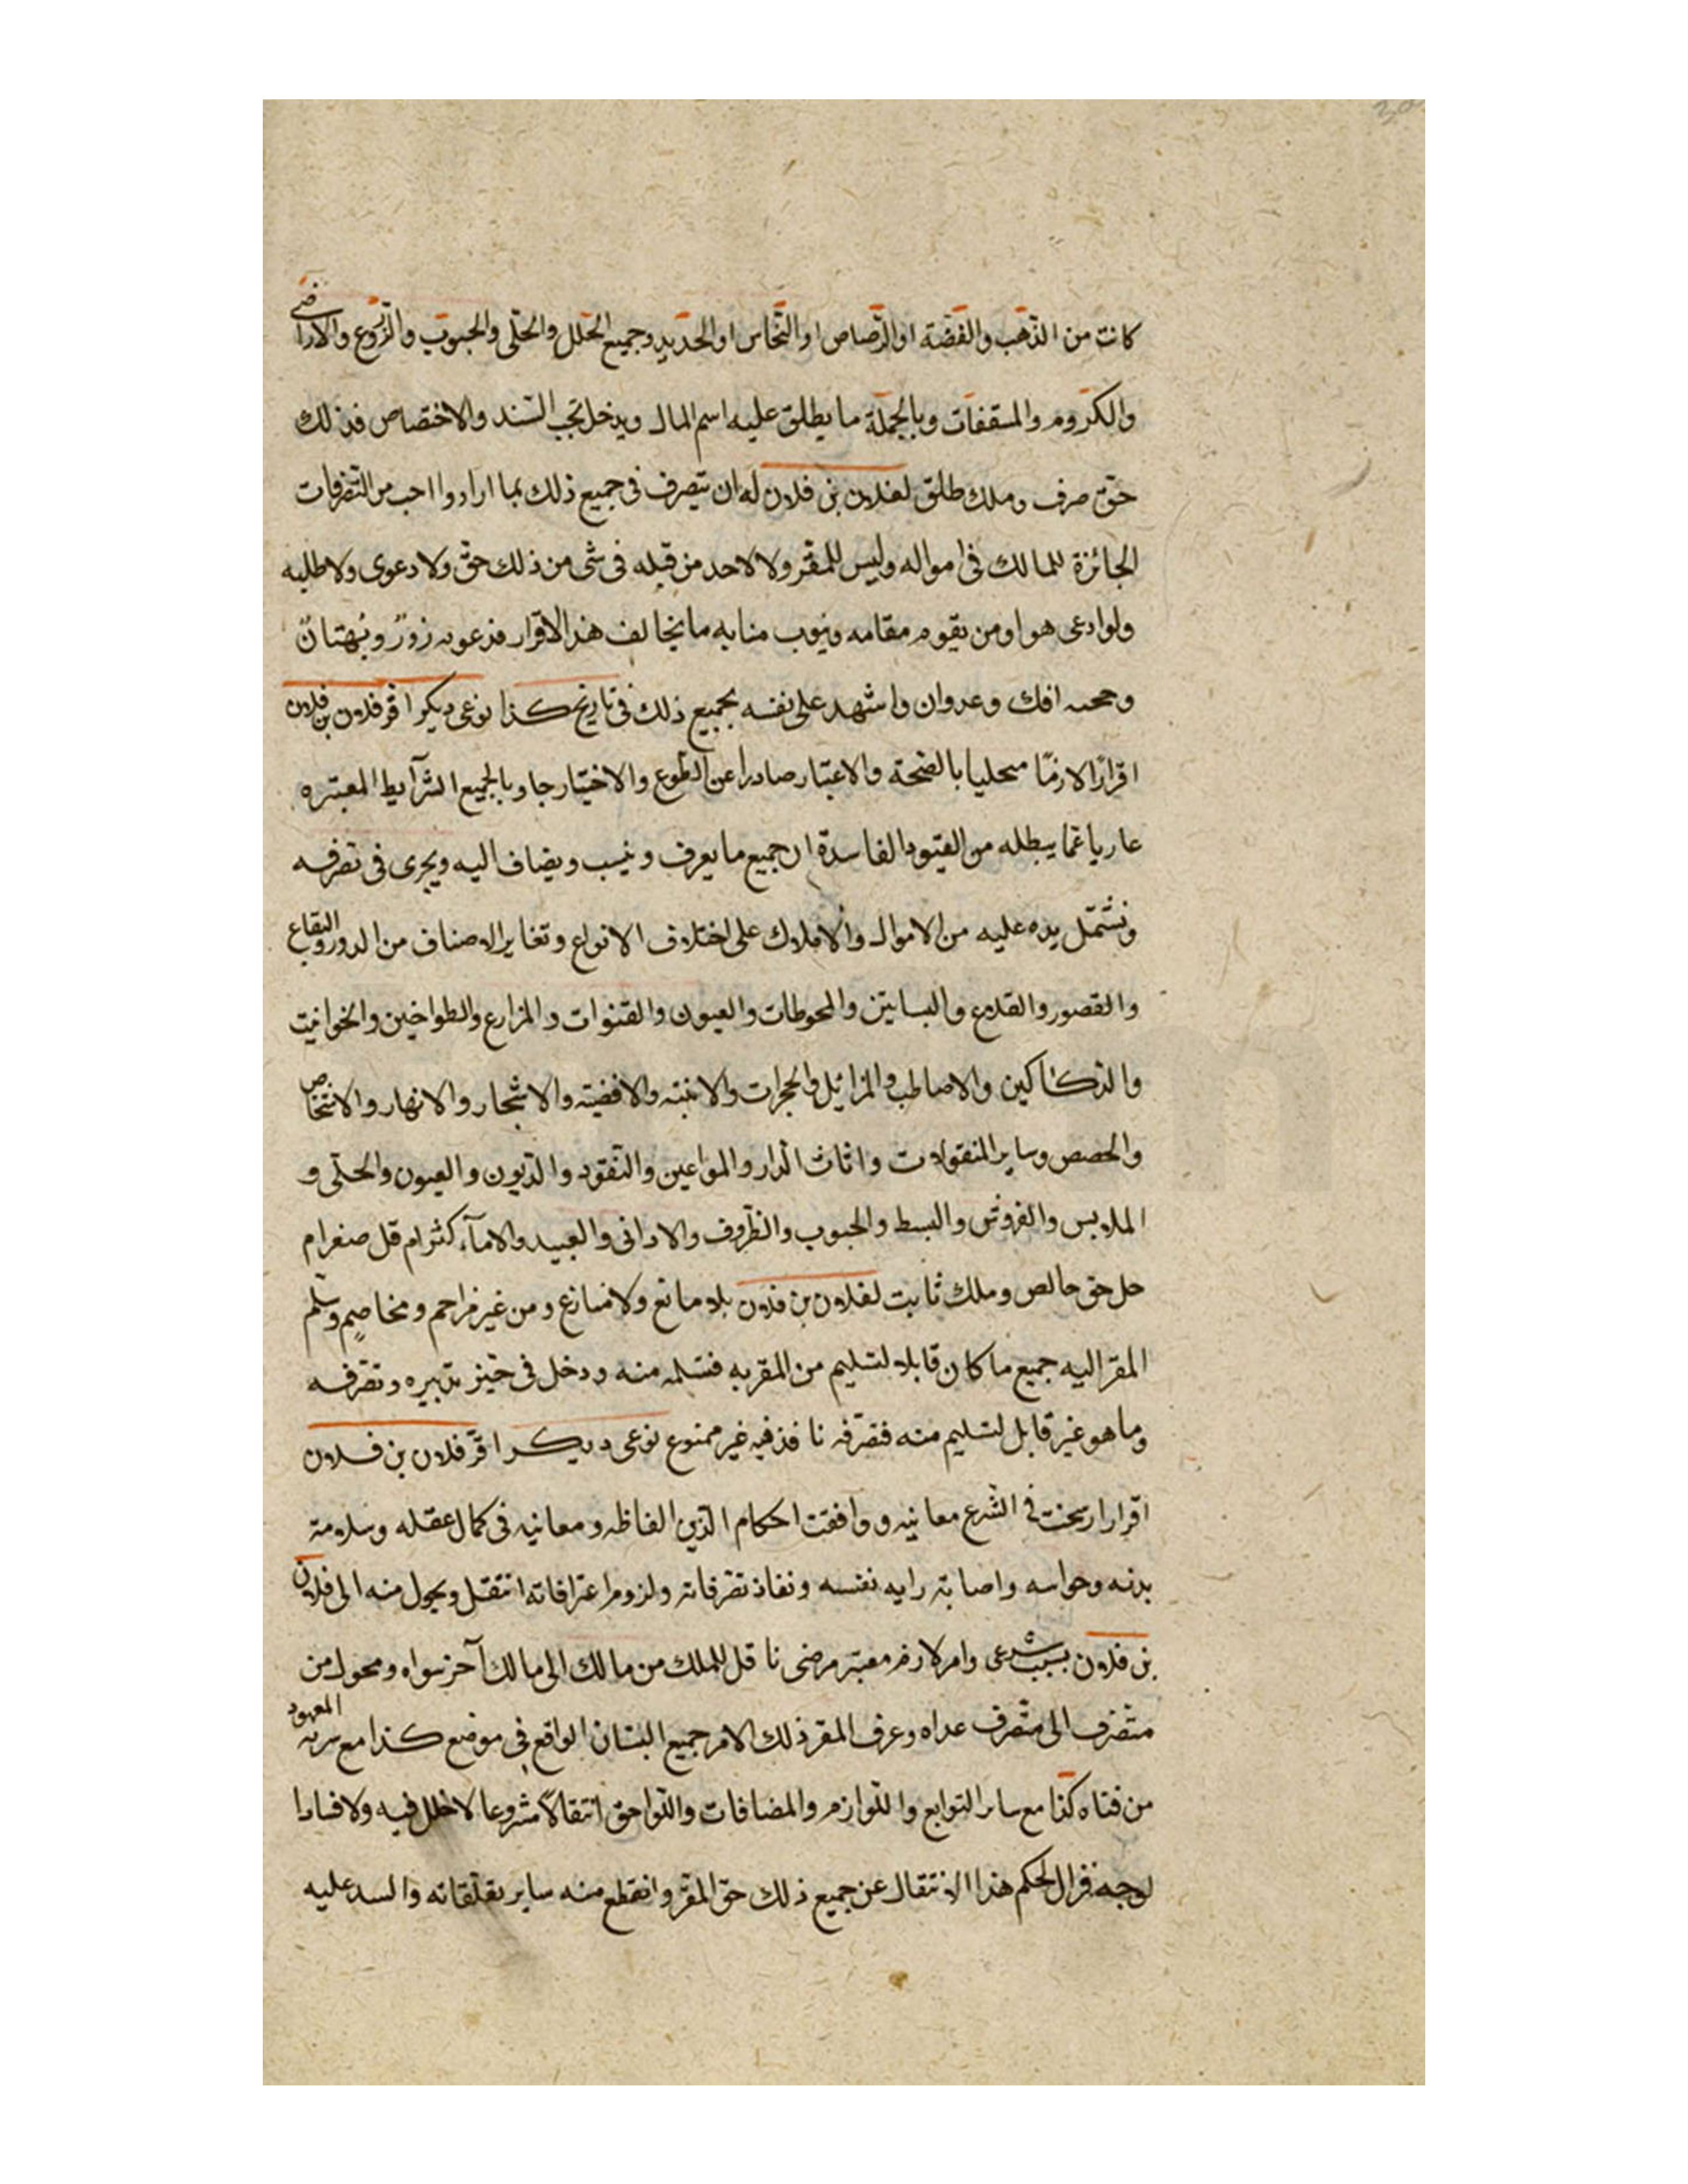 كانت من الذهب والفضة او الرصاص او النحاس او الحديد وجميع الحلل والحلى والحبوب والزروع والاراضى
والكروم والمسقفات وبالجملة ما يطلق عليه اسم المال ويدخل تحب السند والاختصاص فذلك
حق صرف وملك طلق لفلان بن فلان له ان يتصرف فى جميع ذلك بما اراد واحب من التصرفات
الجائزة للمالك فى امواله وليس للمقر ولا لاحد من قبله فى شئ من ذلك حق ولا دعوى ولا طلبه
ولو ادعى هو او من يقوم مقامه وينوب منابه ما يخالف هذا الاقرار فدعوىه زورٌ وبُهتانٌ
وحجته افك وعدوان واشهد على نفسه بجميع ذلك فى تاريخ كذا نوعى ديكر اقر فلان بن فلان
اقرارًا لازمًا محليا بالصحة والاعتبار صادرا عن الطوع والاختيار حاويا لجميع الشرآيط المعتبره
عاريا عمّا يبطله من القيود الفاسدة ان جميع ما يعرف وينسب ويضاف اليه ويجرى فى تصرفه
وتشتمل يده عليه من الاموال والاملاك على اختلاف الانواع وتغاير الاصناف من الدور والبقاع
والقصور والقلاع والبساتين والمحوطات والعيون والقنوات والمزارع والطواحين والحوانيت
والدكاكين والاصاطب والمزابل والحجرات والابنية والافضية والاشجار والانهار والاشخاص
والحصص وساير المنقولات واثاث الدار والمواعين والنقود والديون والعيون والحلى و
الملابس والفروش والبسط والحبوب والظروف والاوانى والعبيد والامآء كثرام قل صغرام
جل حق خالص وملك ثابت لفلان بن فلان بلا مانع ولا منازع ومن غير مزاحم ومخاصم وسلم
المقر اليه جميع ما كان قابلا لتسليم من المقر به فتسلمه منه ودخل فى حيز تدبيره وتصرفه
وما هو غير قابل لتسليم منه فتصرفه نافذ فيه غير ممنوع نوعى ديكر اقر فلان بن فلان
اقرارا رسخت فى الشرع معانيه ووافقت احكام الدين الفاظه ومعانيه فى كمال عقله وسلامة
بدنه وحواسه واصابة رايه نفسه ونفاذ تصرفاته ولزوم اعترافاته انتقل ويحول منه الى فلان
بن فلان بسبب شرعى وامر لازم معتبر مرضى ناقل للملك من مالك الى مالك آخر سواه ومحول من
متصرف الى متصرف عداه وعرف المقر ذلك الامر جميع البستان الواقع فى موضع كذا مع شربه المعهود
من قناه كذا مع ساير التوابع واللوازم والمضافات واللواحق انتقالاً مشروعا لا خلل فيه ولا فسادا
لوجه فزال لحكم هذا الانتقال عن جميع ذلك حق المقر وانقطع منه ساير تعلقاته عليه